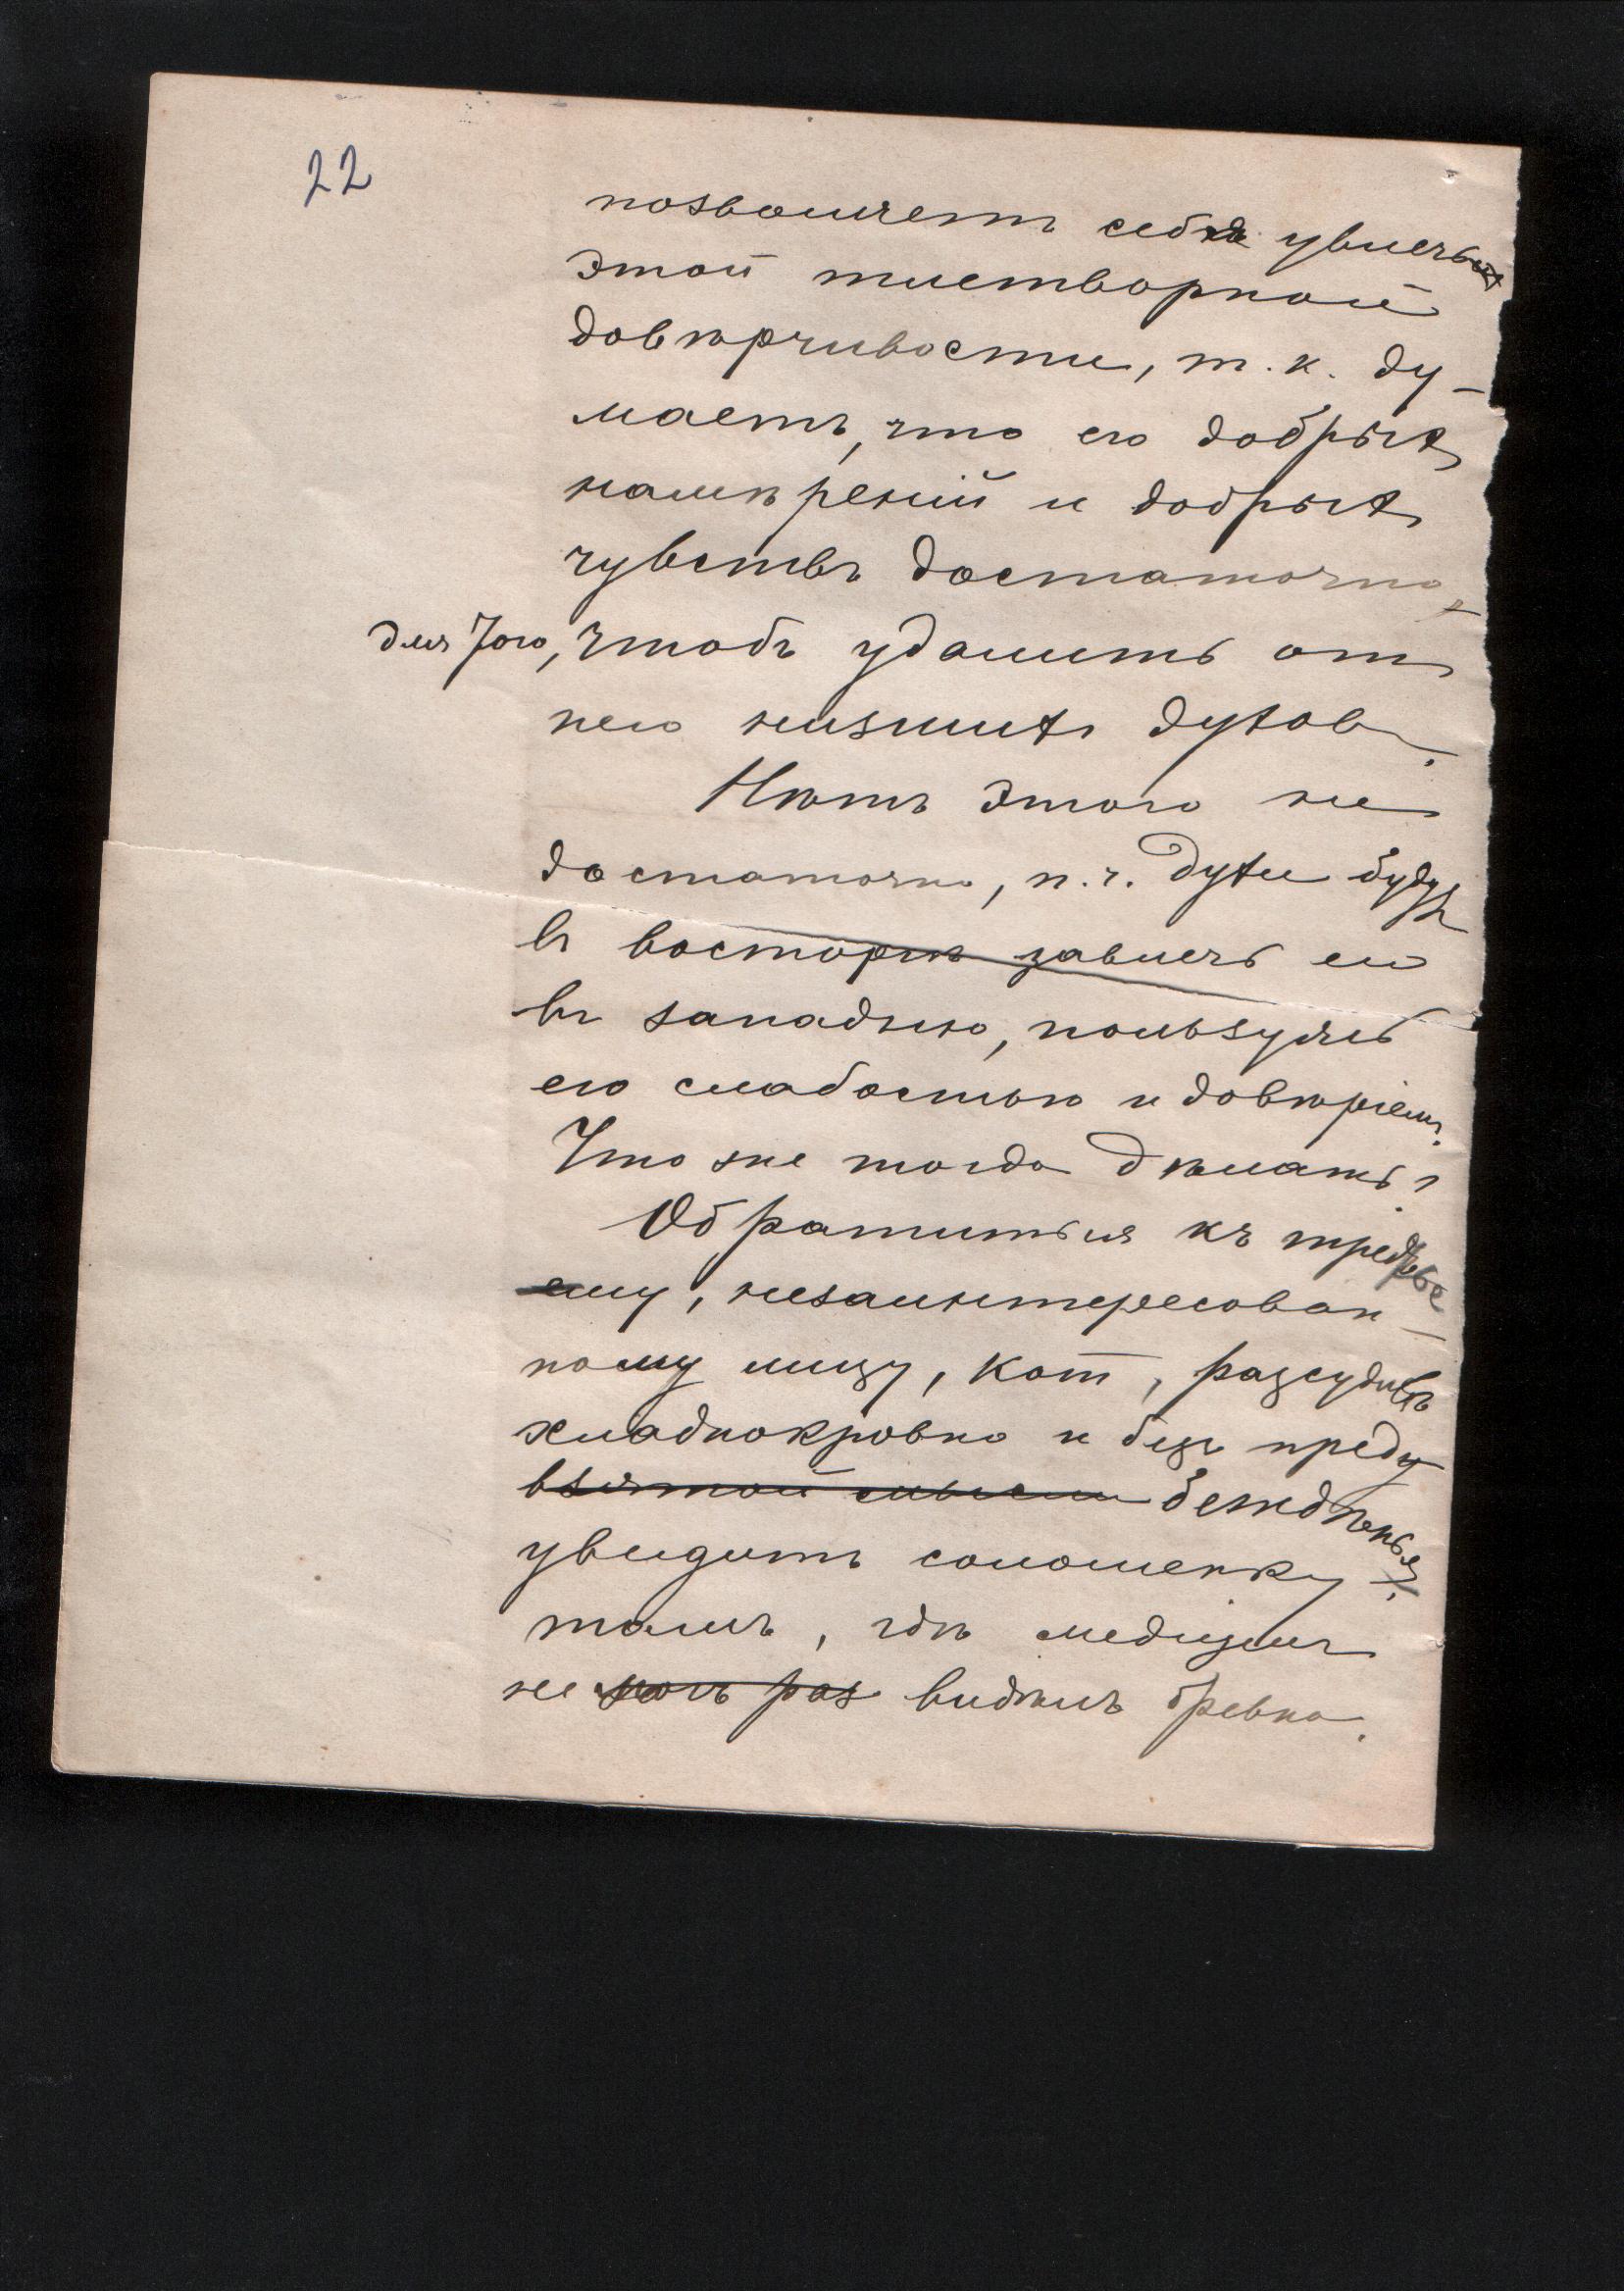 22
позволяетъ себѣ увлечься
этой тлетворной
довѣрчивости, т. к. ду-
маетъ, что его добрыхъ
намѣреній и добрыхъ
чувствъ достаточно
для того, чтобъ удалить отъ
него низшихъ духовъ.
Нѣтъ этого не
достаточно, п. ч. духи будутъ
въ восторгѣ завлечь его
въ западню, пользуясь
его слабостью и довѣріемъ.
Что же тогда дѣлать?
Обратиться къ третье
ему, незаинтересован-
ному лицу, кот, разсудивъ
хладнокровно и безъ преду
взятой мысли бежденья
увидитъ соломенку
тамъ, гдѣ медіумъ
не раз видѣлъ бревна.